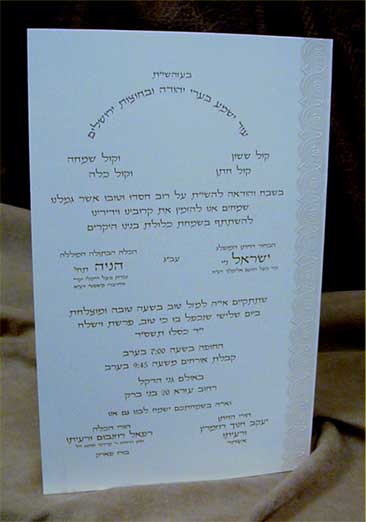 בעזהשי"ת
עוד ישמע בערי יהודה ובחוצות ירושלים
קול ששון וקול שמחה
קול חתן וקול כלה
בשבח והודאה להשי"ת על רוב חסדו וטובו אשר גמלנו
שמחים אנו להזמין את קרובינו וידידינו
להשתתף בשמחת כלולת בנינו היקרים
הבחור החתן המופלג
ישראל ני"
עב"ג
הכלה הבתולה המהוללה
הניה תחי'
שתתקיים אי"ה למזל טוב בשעה טובה ומוצלחת
ביום שלישי שנכפל בו כי טוב, פרשת וישלח
י"ד כסלו תשס"ד
החופה בשעה 7:00 בערב
קבלת אורחים משעה 9:45 בערב
באולם גני הדקל
רחוב עזרא 20 בני ברק
ואי"ה בשמחתכם ישמח לבנו גם אנו
הורי החתן
יעקב חנוך
ורעיתו
אשדוד
הורי הכלה
רפאל רוזנבוים ורעיתו
בורו פארק